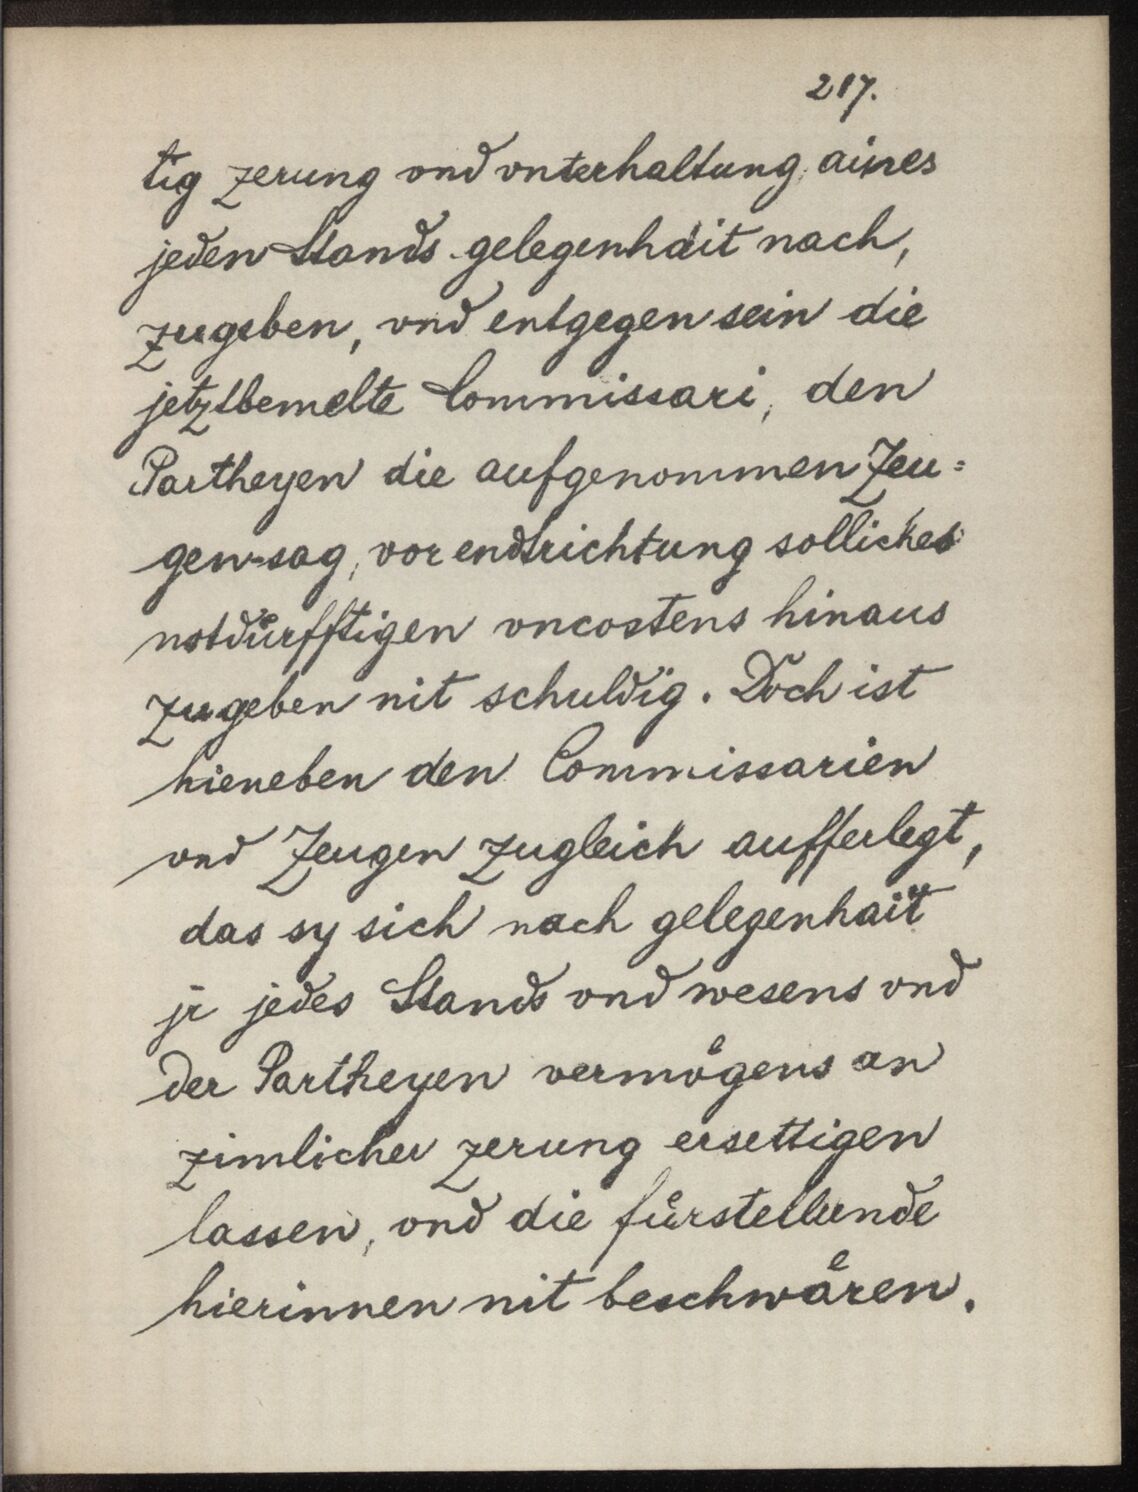 217.
tig zerung vnd vnterhaltung aines
jeden Stands gelegenhait nach,
zugeben, vnd entgegen sein die
jetztbemelte Commissari, den
Partheyen die aufgenommen Zeu=
gen-sag, vor endtrichtung solliches
notduͤrfftigen vncostens hinaus
zugeben nit schuldig. Doch ist
hieneben den Commissarien
vnd Zeugen zugleich aufferlegt,
das sy sich nach gelegenhait
jr jedes Stands vnd wesens vnd
der Partheyen vermoͤgens an
zimlicher zerung ersettigen
lassen, vnd die fuͤrstellende
hierinnen nit beschwaͤren.